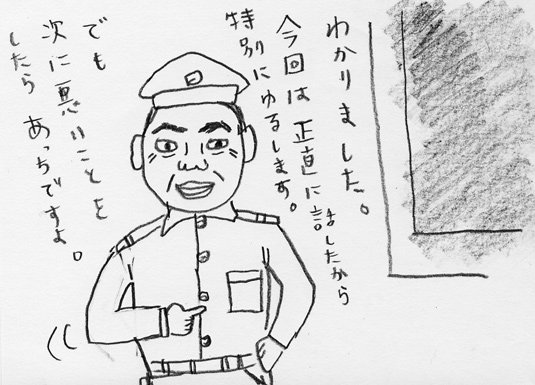 わかりました。
今回は正直に話したから
特別にゆるします。
でも
次に悪いことを
したら あっちですよ。